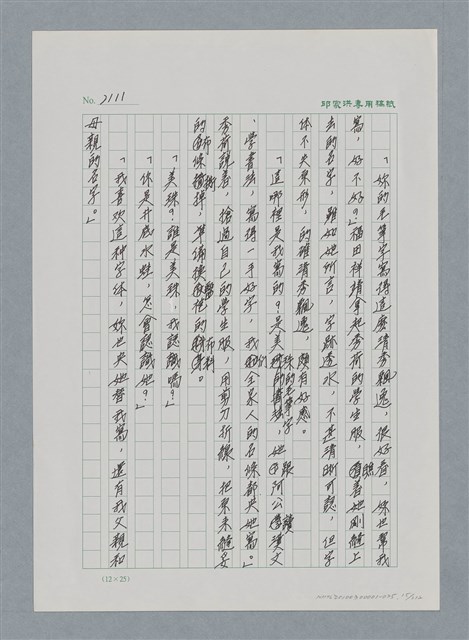 No. 2111
邱家洪專用稿紙
「妳的毛筆字寫得這麼清秀飄逸，很好看，妳也幫我
寫，好不好？」福田祥靖拿起秀荷的學生服，看著她剛縫上
去的名字，雖如她所言，字跡透水，不甚清晰可認，但字
體不失原形，的確清秀飄逸，頗有好感。
「這哪裡是我寫的？是美珠的毛筆字，她跟阿公讀漢文
、學書法，寫得一手好字，我們全家人的名條都央她寫。」
秀荷說著，搶過自己的學生服，用剪刀折線，把原來縫妥
的布條摘掉，準備換成新的布料。
「美珠？誰是美珠？我認識嗎？」
「你是井底水蛙，怎會認識她？」
「我喜歡這种字体，妳也央她替我寫，還有我父親和
母親的名字。」
(12×25)